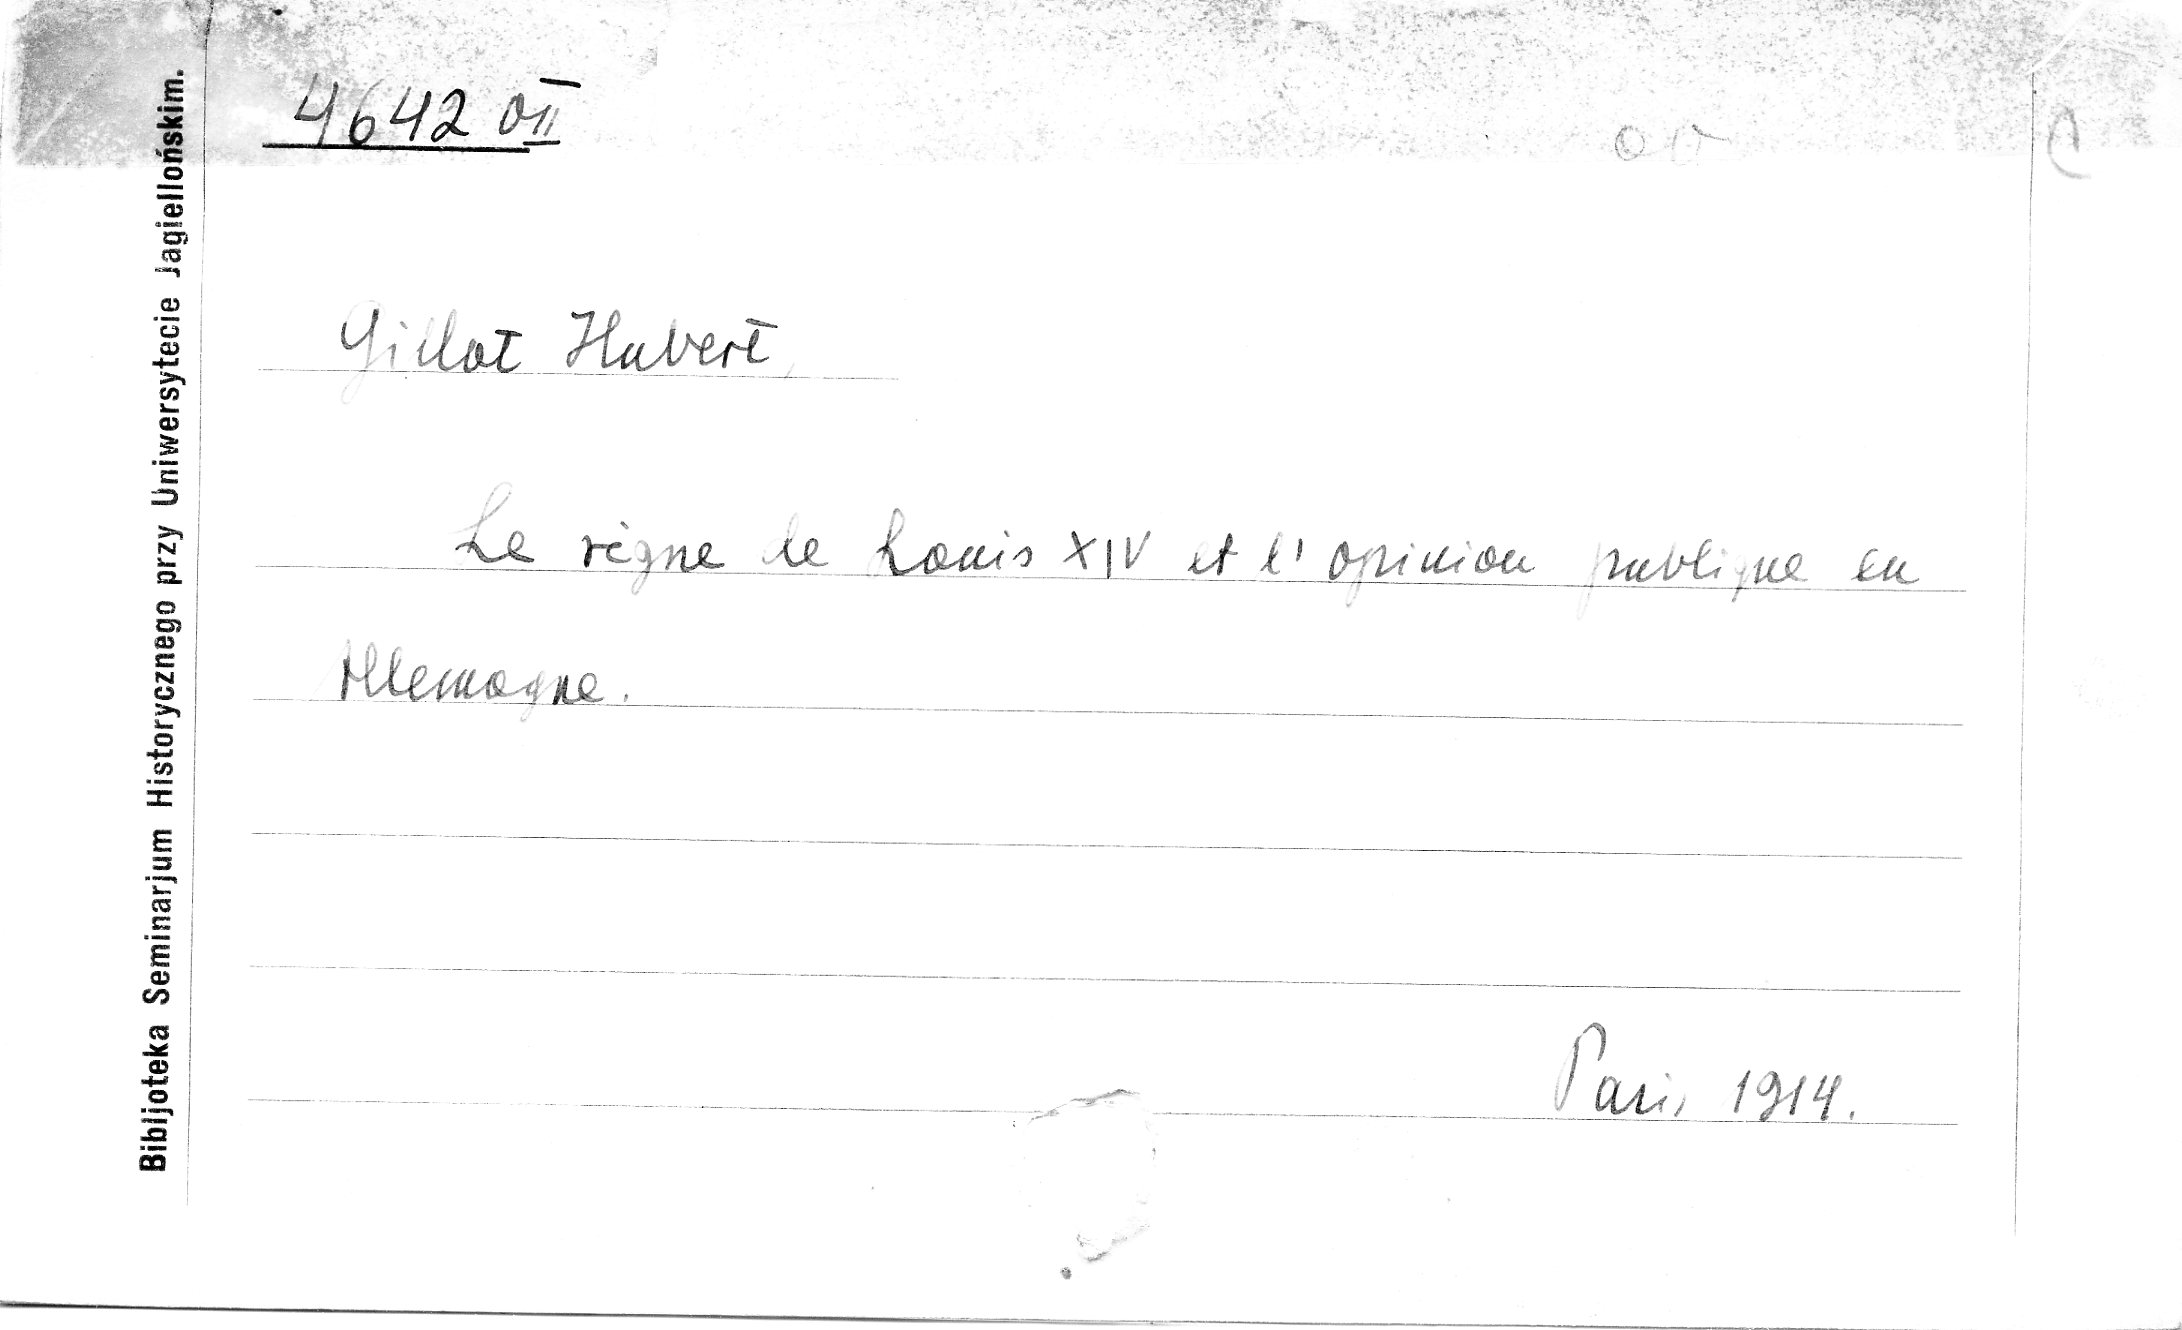 4642 OII
Gillot Hubert,
Le règne de Louis XIV et l'opinion publique en
Allemagne.
Paris 1914.
Bibljoteka Seminarjum Historycznego przy Uniwersytecie Jagiellońskim.